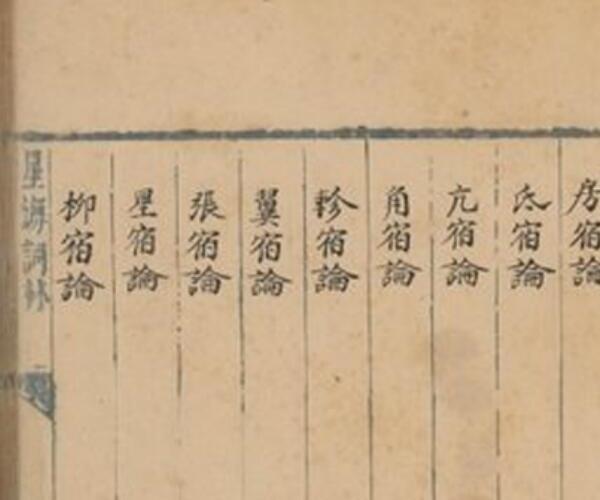 房宿論
氐宿論
亢宿論
角宿論
軫宿論
翼宿論
張宿論
星宿論
柳宿論
星海詞林